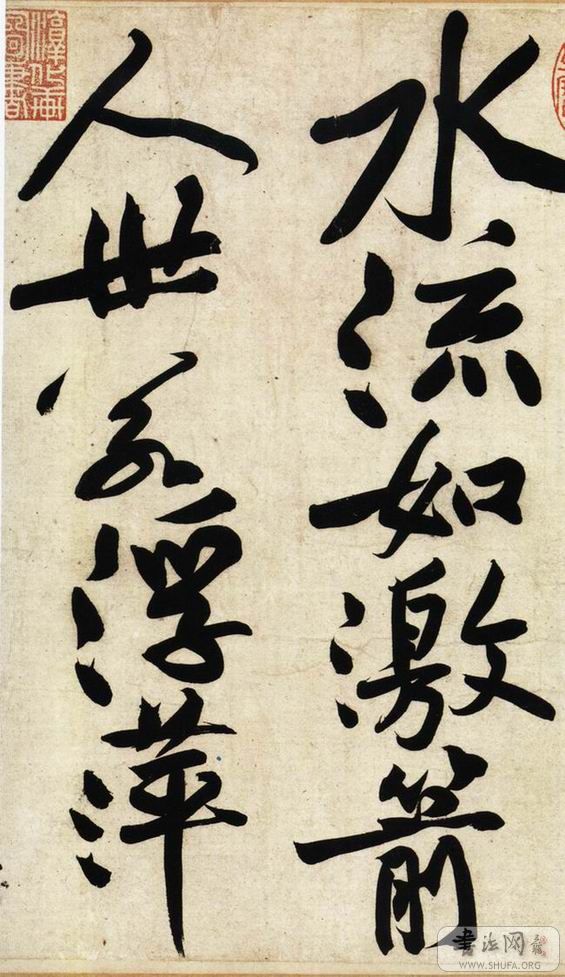 水流如激箭
人世若浮萍
書法网
WWW.SHUFA.ORG